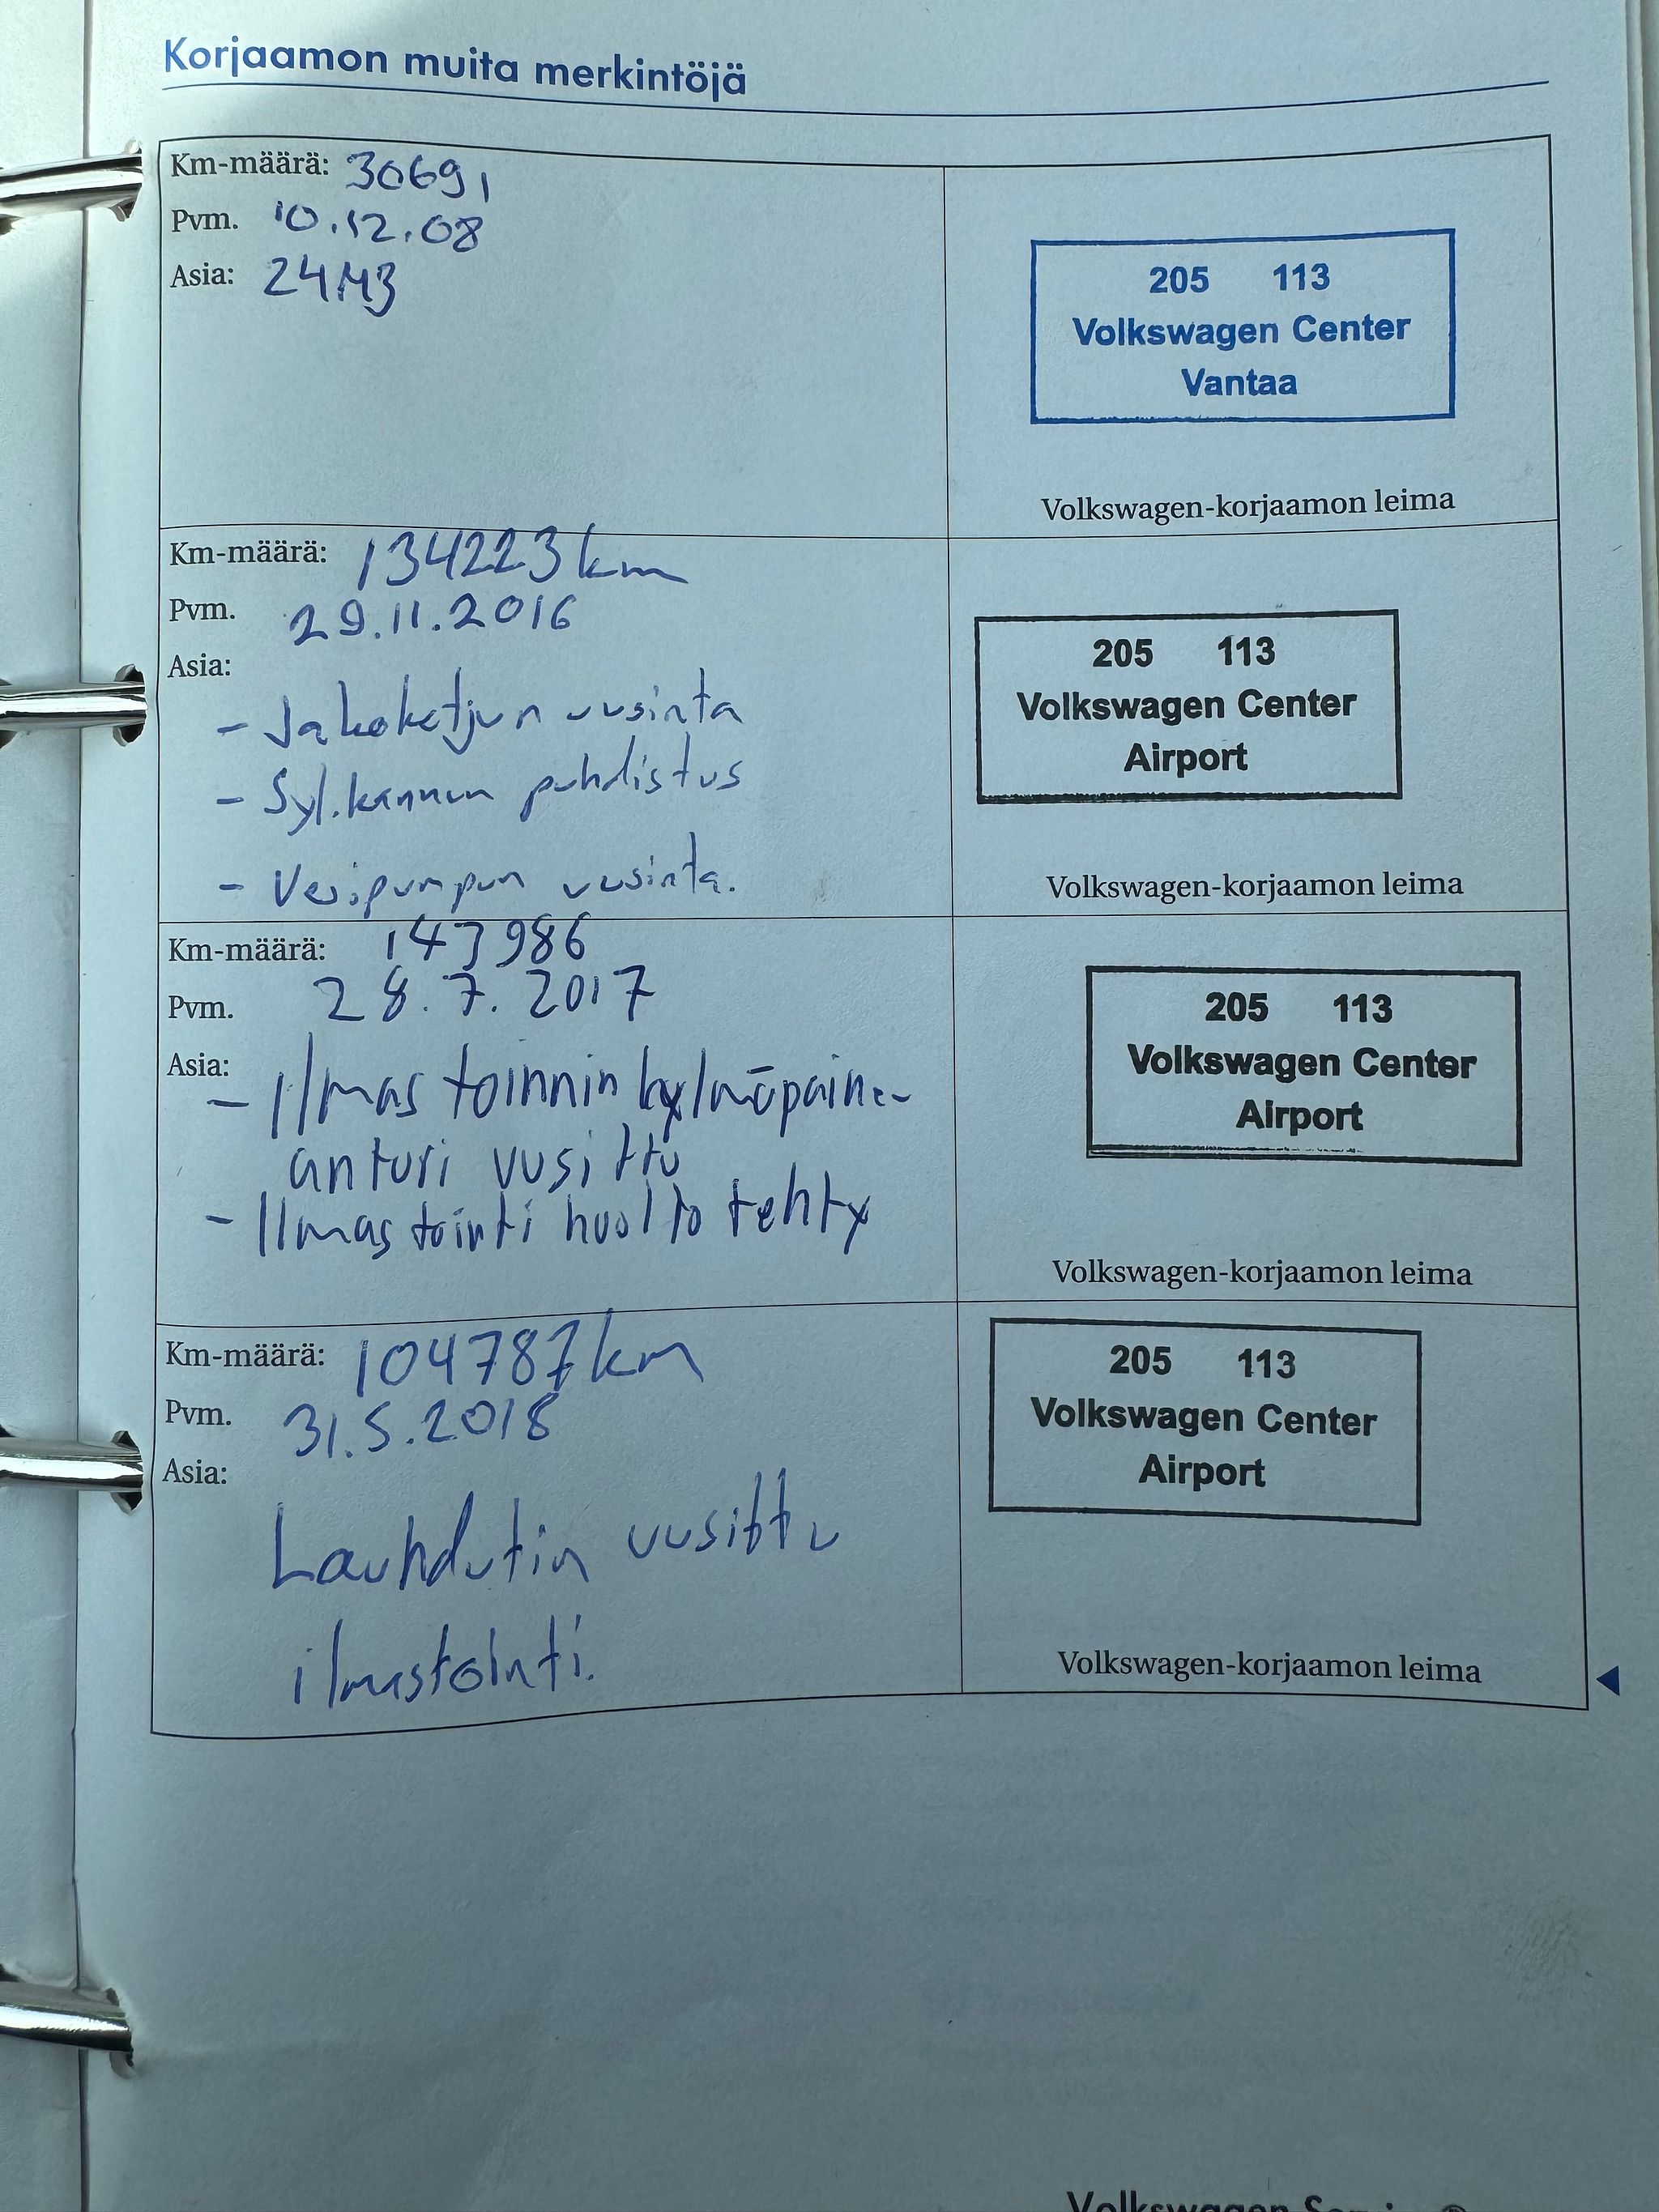 Korjaamon muita merkintöjä
Km-määrä: 30691
Pvm. 10.12.08
Asia: 24M3
205 113
Volkswagen Center
Vantaa
Volkswagen-korjaamon leima
Km-määrä: 134223km
Pvm. 29.11.2016
Asia:
- Jakoketjun uusinta
- Syl.kannen puhdistus
- Vesipumpun uusinta.
205 113
Volkswagen Center
Airport
Volkswagen-korjaamon leima
Km-määrä: 143986
Pvm. 28.7.2017
Asia:
- Ilmastoinnin kylmäpaine-
anturi uusittu
- Ilmastointi huolto tehty
205 113
Volkswagen Center
Airport
Volkswagen-korjaamon leima
Km-määrä: 104787km
Pvm. 31.5.2018
Asia:
Lauhdutin uusittu
ilmastointi.
205 113
Volkswagen Center
Airport
Volkswagen-korjaamon leima